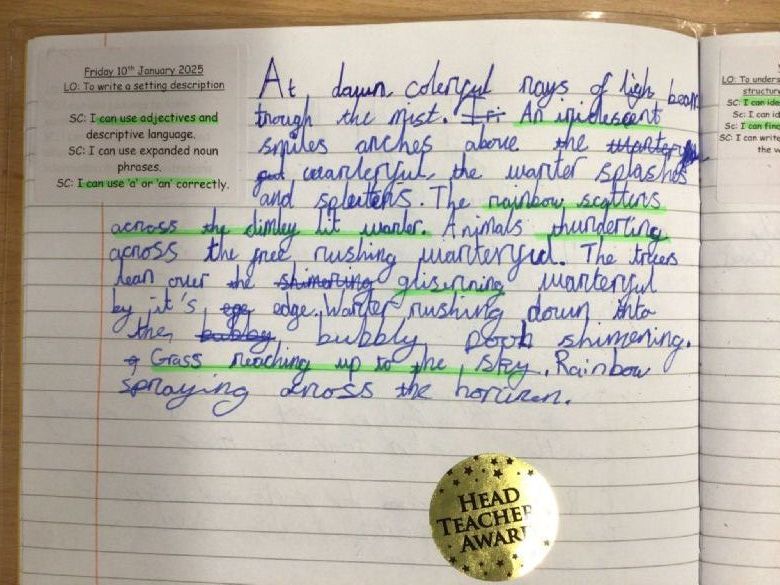 Friday 10th January 2025
LO: To write a setting description
SC: I can use adjectives and
descriptive language.
SC: I can use expanded noun
phrases.
SC: I can use 'a' or 'an' correctly.
At dawn colerful rays of ligh beam
trough the mist. An iridescent
smiles arches above the
wanterful, the wanter splashes
and . The rainbow scatters
across the dimley lit wanter. Animals thunderting
across the free rushing wanterful. The trees
lean over the shimering glisinning wanterful
by it's, edge. Wanter rushing down into
the, bubbly pooh shimering.
Grass reaching up to the sky. Rainbow
spraying across the horizen.
HEAD
TEACHER
AWARD
LO: To unders
structur
SC: I can ide
SC: I can id
SC: I can fin
SC: I can write
the w